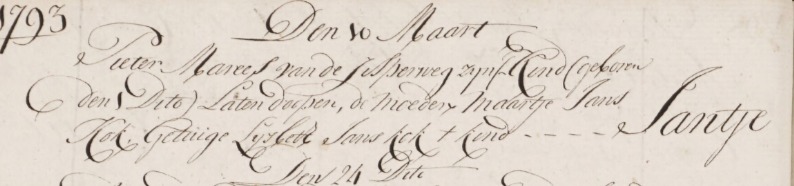 1793
Den 10 Maart
Pieter Marees van de Jisperweg zijn Kind (geboren
den 1 Dito) Laten doopen, de Moeder Maartje Jans
Kok, Getuige Lijsbeth Jans kok t kind - - - - - Jantje
Den 24 Dito